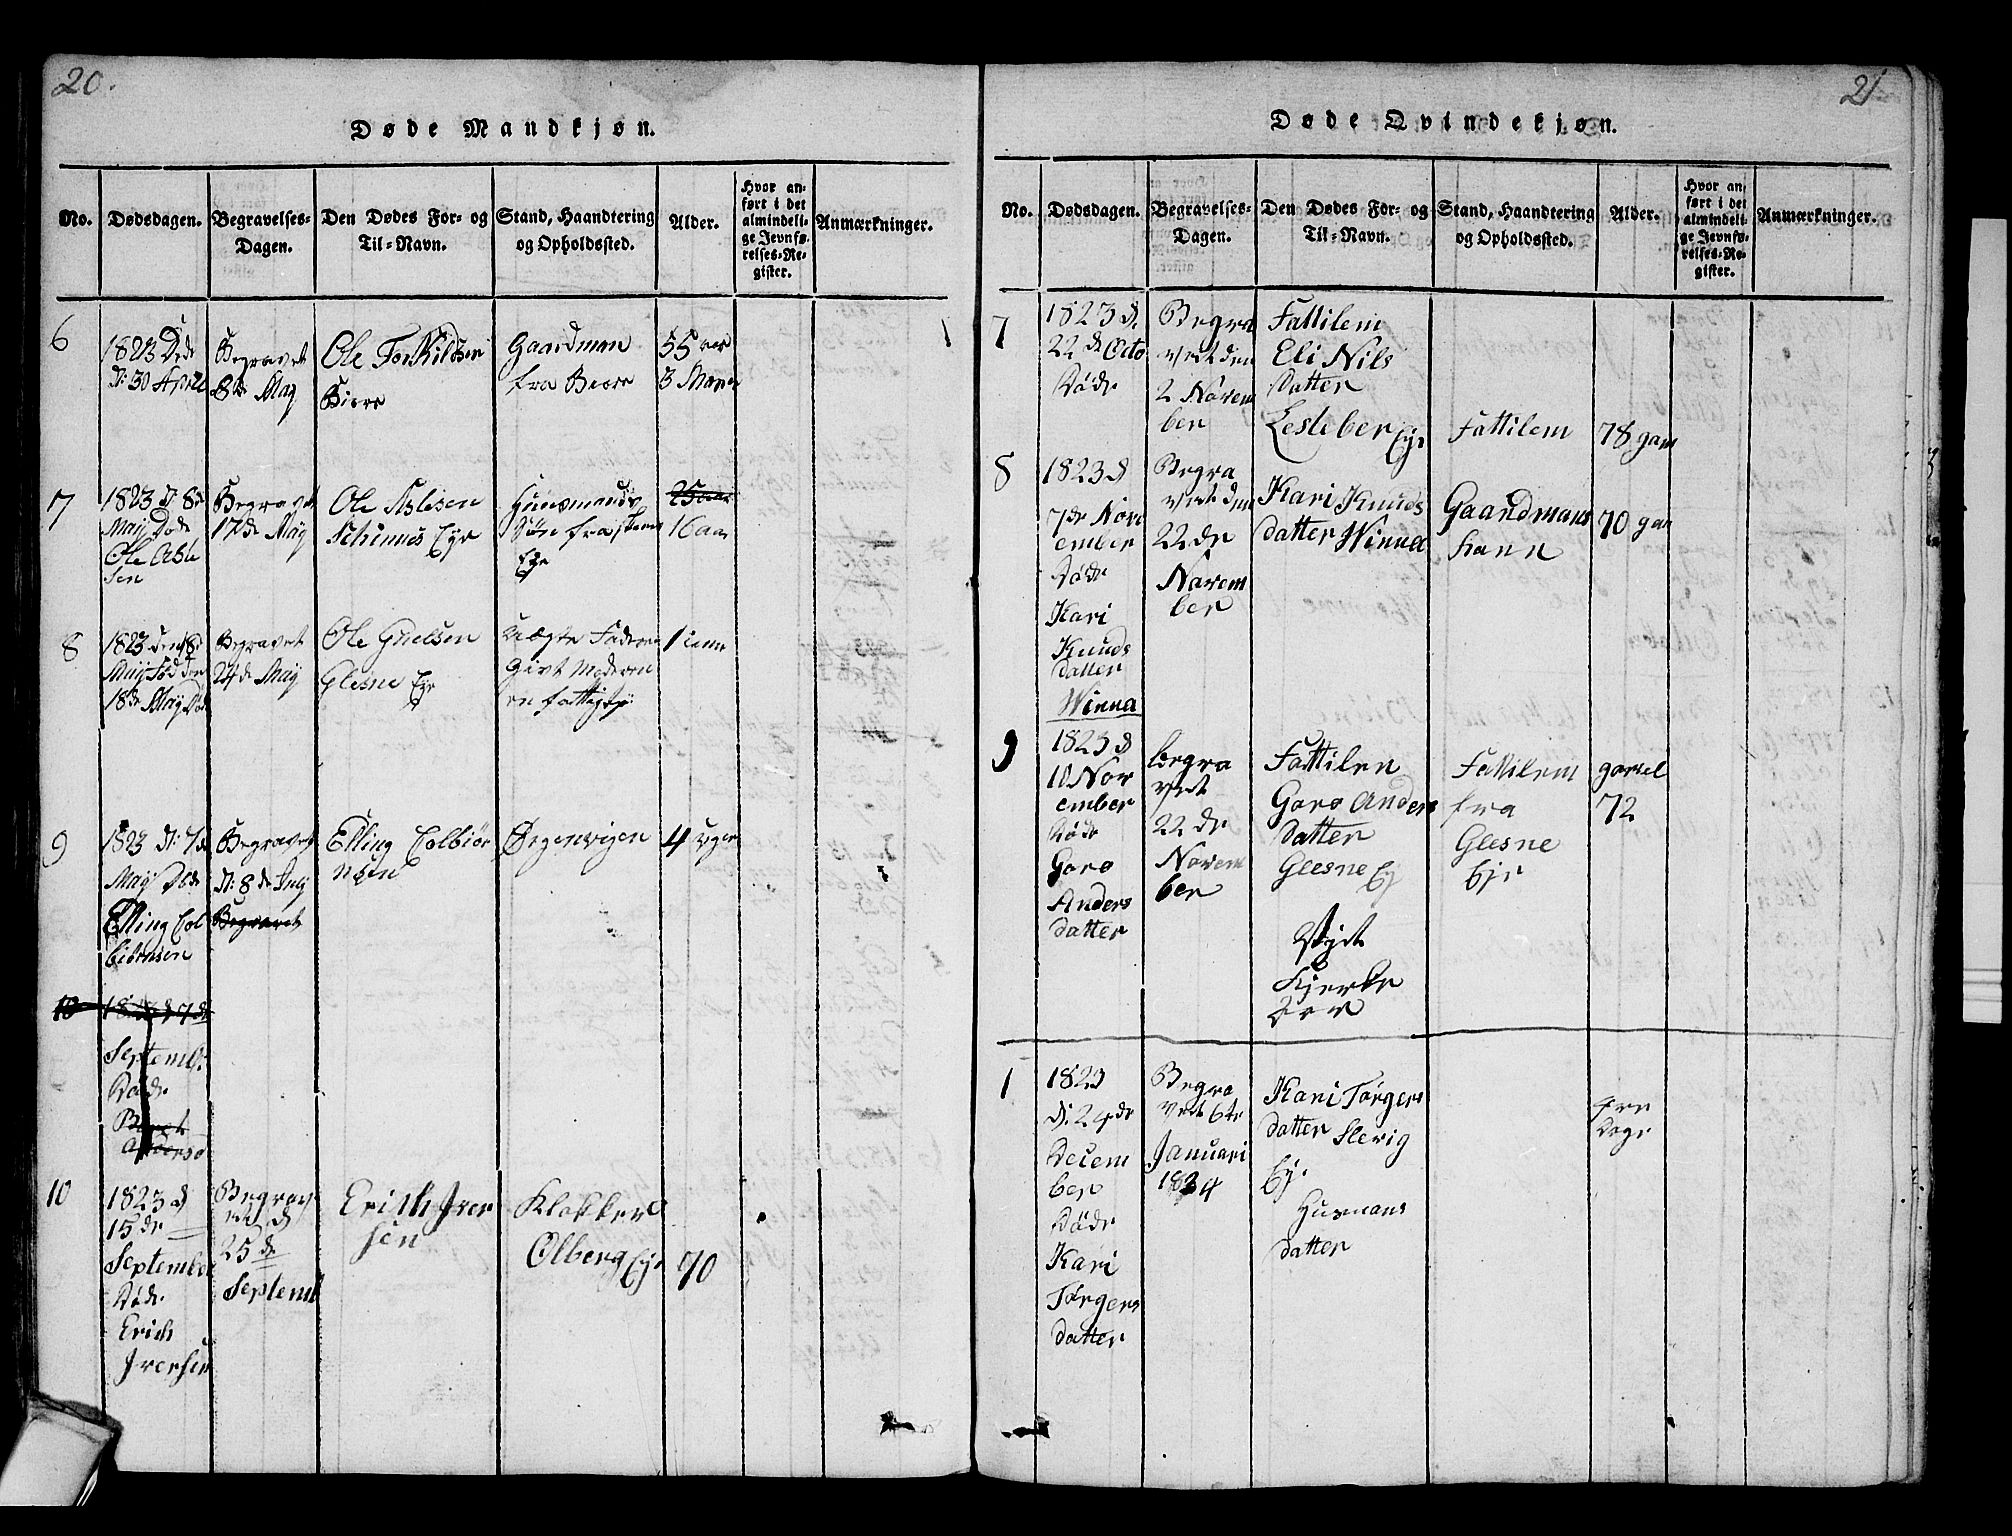 20.
Døde Mandkjøn.
No.
Dødsdagen.
Begravelses-
Dagen.
Den Dødes For- og
Til-Navn.
Stand, Haandtering
og Opholdssted.
Alder.
Hvor an-
ført i det
almindeli-
ge Jevnfø-
relses-Re-
gister.
Anmærkninger.
6
1823 Døde
d: 30 April
Begravet
8de May
Ole Torkildsen
Biere
Gaardman
fra Biere
55
3
7
1823 d: 8de
May Døde
Ole
sen
Begravet
17de May
Ole Aslesen
Eye
Huusmands
Søn fra
Eye
25 aar
16 aar
8
1823 den 18de
May Fød den
18de May Død
Begravet
24de May
Ole
Glesne Eye
Uægte Faderen
Givt Moderen
en fattig
1 time
9
1823 d: 7de
May Døde
Elling Col
biörnsen
Begravet
d: 8de July
Begravet
Elling Colbiör
nsen
Ørgenvigen
4 Uger
10
7de
Septemb.
Døde
10
1823 d
15de
September
Døde
Erich
Iversen
Begrav
et d
25de
Septemb
Erich Iver
sen
Klokker
Olberg Eye
70
21
Døde Qvindekjøn.
No.
Dødsdagen.
Begravelses-
Dagen.
Den Dødes For- og
Til-Navn.
Stand, Haandtering
og Opholdssted.
Alder.
Hvor an-
ført i det
almindeli-
ge Jevnfø-
relses-Re-
gister.
Anmærkninger.
7
1823 d.
22de Octo
Døde
Begra
vet den
2 Novem
ber
Fattilem
Eli Nils
datter
Lesteber Eye
Fattilem
78 gam
8
1823 d
7de Nov
ember
Døde
Kari
Knuds
datter
Winna
Begra
vet den
22de
Novem
ber
Kari Knuds
datter Winna
Gaardmans
kann
70 gam
9
1823 d
10 Nov
ember
Døde
Goro
Anders
datter
Begra
vet
22de
Novem
ber
Fattilem
Goro Anders
datter
Glesne Ey
Kjerke
Fattilem
fra
Glesne
Eje
gamel
72
1
1823
d: 24de
Decem
ber
Døde
Kari
Törgers
datter
Begra
vet 6te
Januari
1824
Kari Törgers
datter Slevig
Ey.
Husmans
datter
Dage